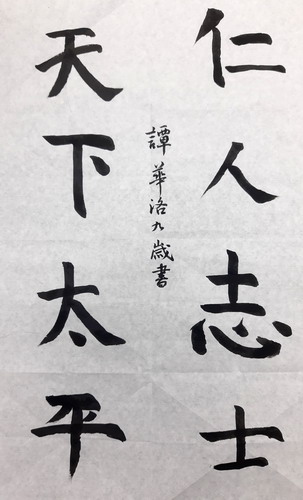 仁人志士
天下太平
譚華洛九歲書